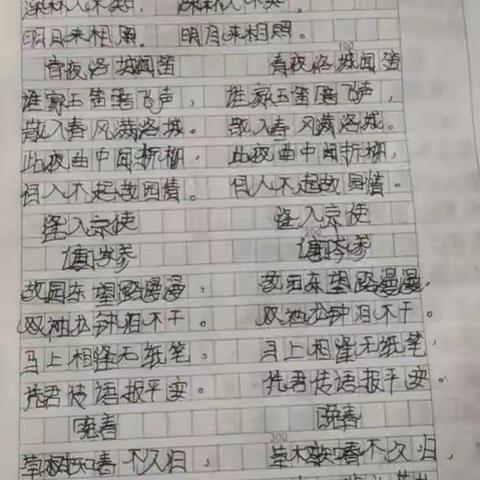 深林人不知， 深林人不知，
明月来相照。 明月来相照。
春夜洛城闻笛 春夜洛城闻笛
谁家玉笛暗飞声， 谁家玉笛暗飞声，
散入春风满洛城。 散入春风满洛城。
此夜曲中闻折柳， 此夜曲中闻折柳，
何人不起故园情。 何人不起故园情。
逢入京使 逢入京使
唐岑参 唐岑参
故园东望路漫漫， 故园东望路漫漫，
双袖龙钟泪不干。 双袖龙钟泪不干。
马上相逢无纸笔， 马上相逢无纸笔，
凭君传语报平安。 凭君传语报平安。
晚春 晚春
300
草树知春不久归， 草木知春不久归，